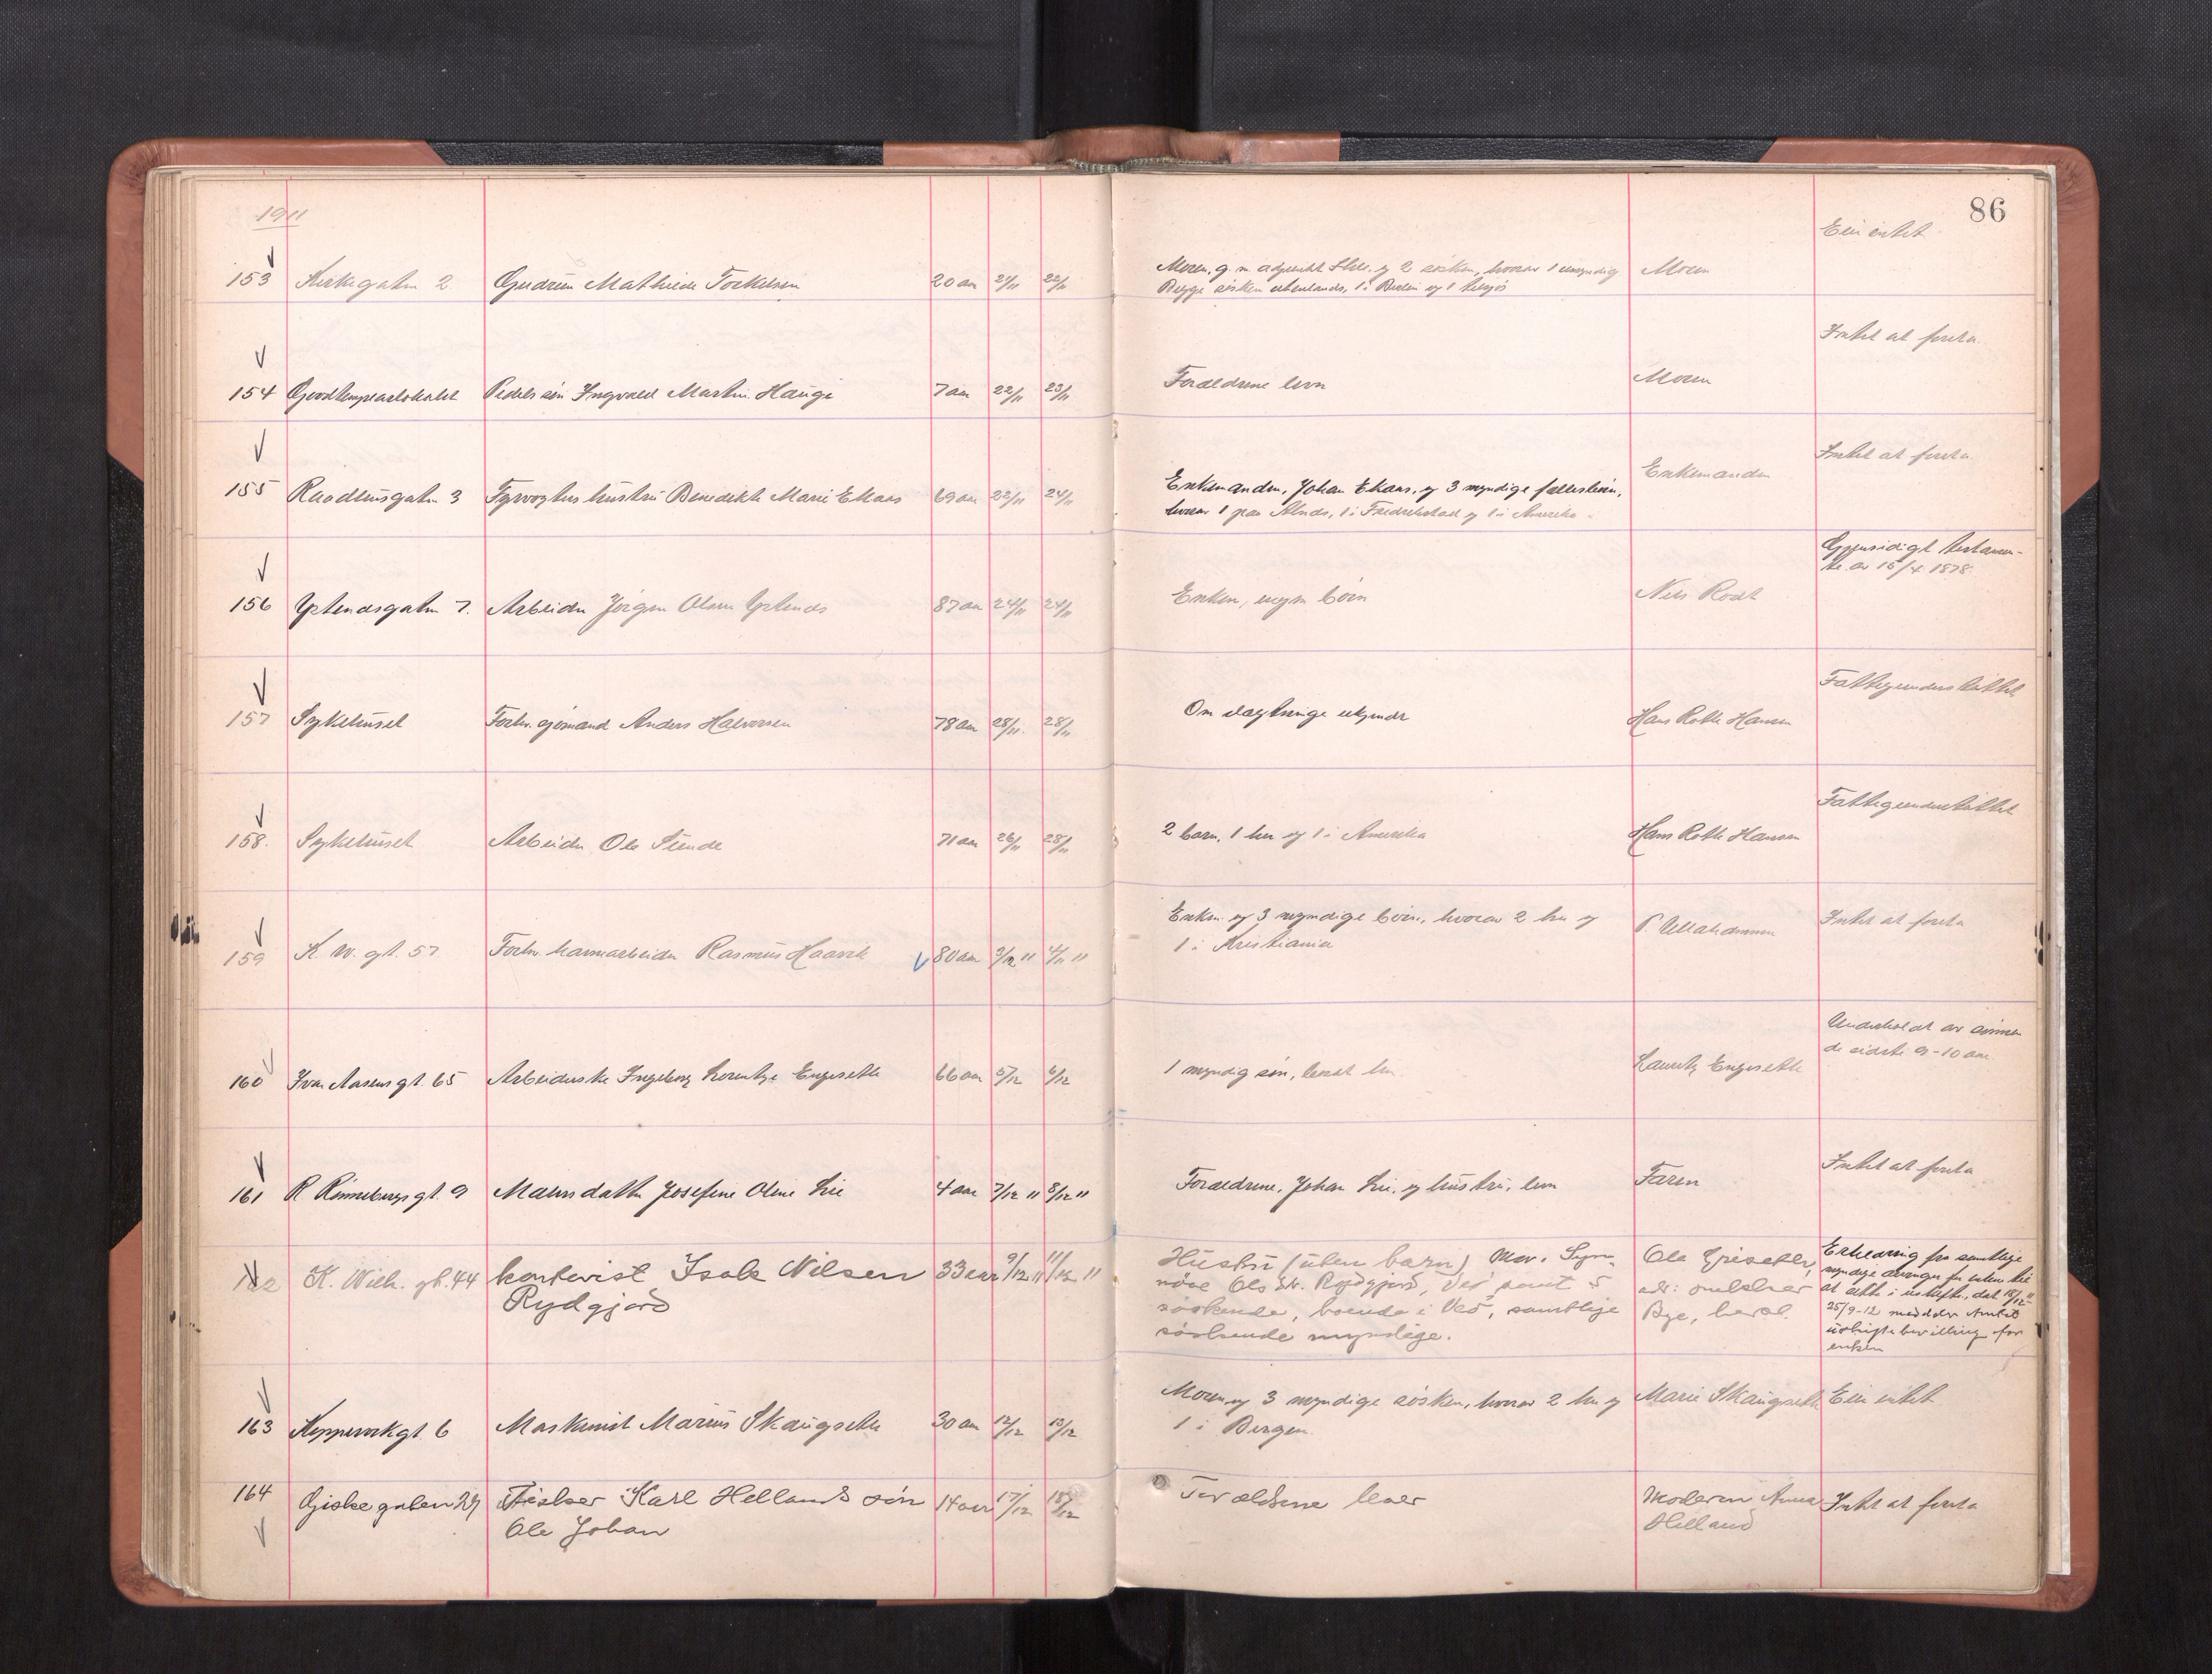 1911
86
153 Kirkegaten 2. Gudrun Mathilde Torkelsen 20 aar 21/11 22/11 Moren, g. m. adjunkt og 2 søsken, hvorav 1 umyndig Moren Eier intet
Begge søsken utenlands, 1 i Berlin og 1 tilsjøs
154 Goodtemplarlokalet Pedels søn Ingvald Martin Haugе 7 aar 22/11 23/11 Foræeldrene lever Moren Intet at foreta.
155 Raadhusgaten 3 Fyrvogters hustru Benedikte Marie Ekaas 69 aar 22/11 24/11 Enkemanden, Johan Ekaas, og 3 myndige fællesbørn, Enkemanden Intet at foreta.
hvorav 1 paa Alnes, 1 i Fredrikstad og 1 i Amerika.
156 Ystenesgaten 7. Arbeider Jørgen Olsen Ystenes 87 aar 24/11 24/11 Enken, ingen børn Nils Rodt Gjensidigt testamen-
te av 15/4 1878.
157 Sykehuset Forhv. sjømand Anders Halvorsen 78 aar 28/11. 28/11 Om slægtninge ukjendt Hans Rotle Hansen Fattigunderstøttet
158. Sykehuset Arbeider Ole Sunde 71 aar 26/11 28/11 2 barn, 1 her og 1 i Amerika Hans Rotle Hansen Fattigunderstøttet
159 K. W. gt. 57 Forhv. havnearbeider Rasmus Haavik 80 aar 3/12 11 4/11 11 Enken og 3 myndige børn, hvorav 2 her og Intet at foreta
1 i Kristiania
160 Ivar Aasens gt. 65 Arbeiderske Ingeborg Lorentze Engesetle 66 aar 5/12 6/12 1 myndig søn, bosat her. Lauritz Engesetle Underholdt av sønnen
de sidste 9-10 aar
161 R Rønnebergs gt. 9 Malers datter Josefine Oline Lie 4 aar 7/12 11 8/12 11 Forældrene, Johan Lie, og hustru, lever Faren Intet at foreta
162 K. Wilh. gt. 44 kontorist Isak Nilsen 33 aar 9/12 11 11/12 11 Hustru (uten barn) Mor. Syn- Ole Griseth, Erklæring fra samtlige
Rydgjerd nøve Ols dt. Rydgjerd, Vedø samt 5 adr: smeden myndige arvinger for enken til
søskende, boende i Vedø, samtlige Bye, herst. at sitte i uskifte, dat. 18/12 11
søskende myndige. 25/9-12 meddelt Amtet
uskiftebevilling for
enken
163 Keppervikgt. 6 Maskinist Marius Skaugseth 30 aar 12/12 13/12 Moren og 3 myndige søsken, hvorav 2 her og Marie Skaugseth Eier intet
1 i Bergen.
164 Giskegaten 29 Fisker Karl Hellands søn 14 aar 17/12 18/12 Forældrene lever Moderen Anna Intet at foreta
Ole Johan Helland